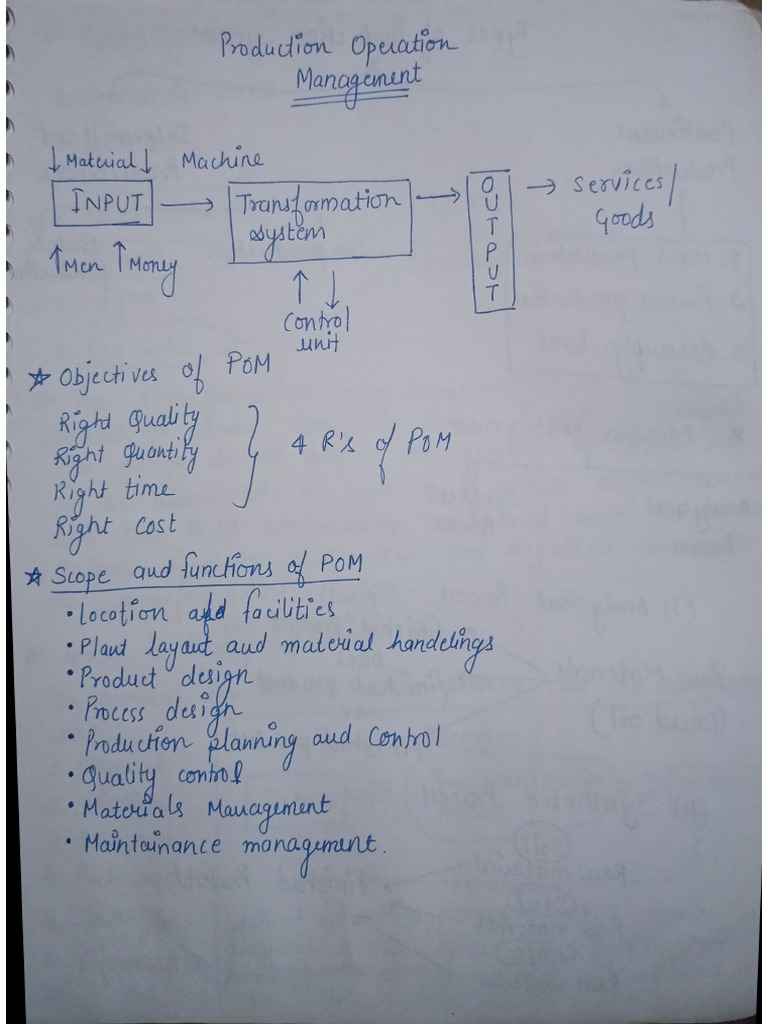 Production Operation
Management
↓ Material ↓ Machine
INPUT → Transformation system → OUTPUT → Services/
Goods
↑ Men ↑ Money
↑ ↓
Control
unit
☆ Objectives of POM
Right Quality
Right Quantity
Right time
Right cost
4 R's of POM
☆ Scope and functions of POM
• Location of facilities
• Plant layout and material handelings
• Product design
• Process design
• Production planning and Control
• Quality control
• Materials Management
• Maintainance management.